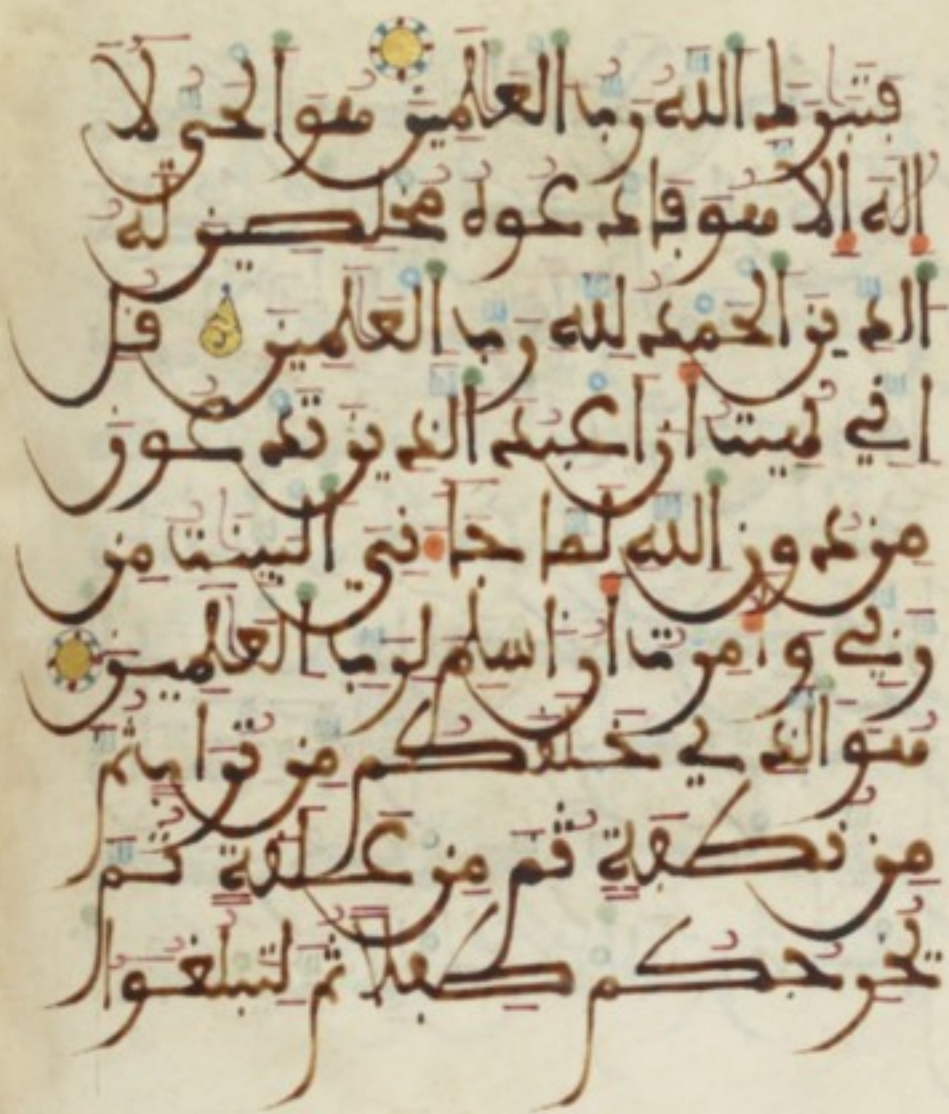 فتبرك الله رب العلمين هو الحي لا
اله الا هو فادعوه مخلصين له
الدين الحمد لله رب العلمين قل
اني نهيت ان اعبد الذين تدعون
من دون الله لما جاءني البينت من
ربي وامرت ان اسلم لرب العلمين
هو الذي خلقكم من تراب ثم
من نطفة ثم من علقة ثم
يخرجكم طفلا ثم لتبلغوا